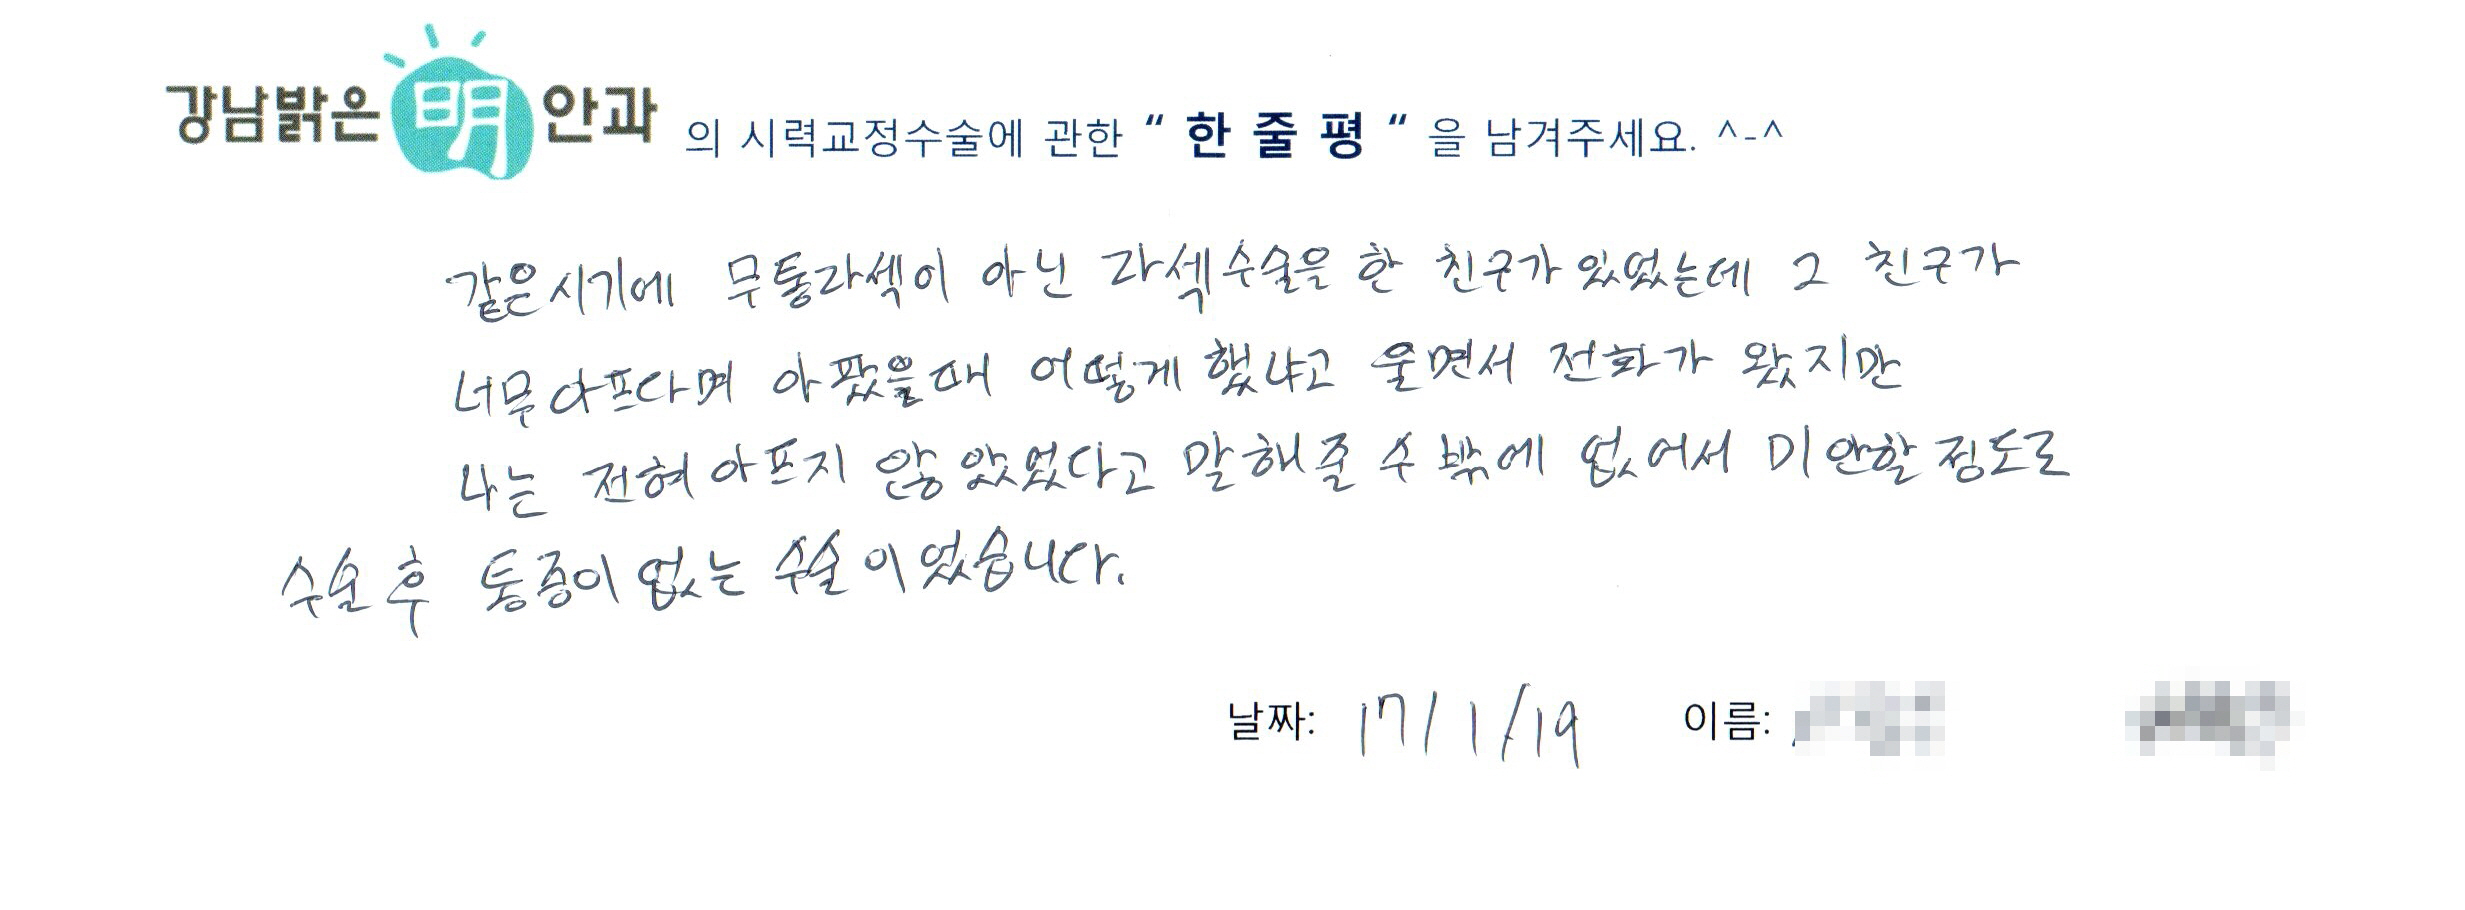 강남밝은 明 안과 의 시력교정수술에 관한 “ 한 줄 평 “ 을 남겨주세요. ^-^
같은시기에 무통라섹이 아닌 라섹수술을 한 친구가 있었는데 그 친구가
너무아프다며 아팠을때 어떻게 했냐고 울면서 전화가 왔지만
나는 전혀 아프지 않았었다고 말해줄 수 밖에 없어서 미안할 정도로
수술 후 통증이 없는 수술이었습니다.
날짜: 17/1/19 이름: